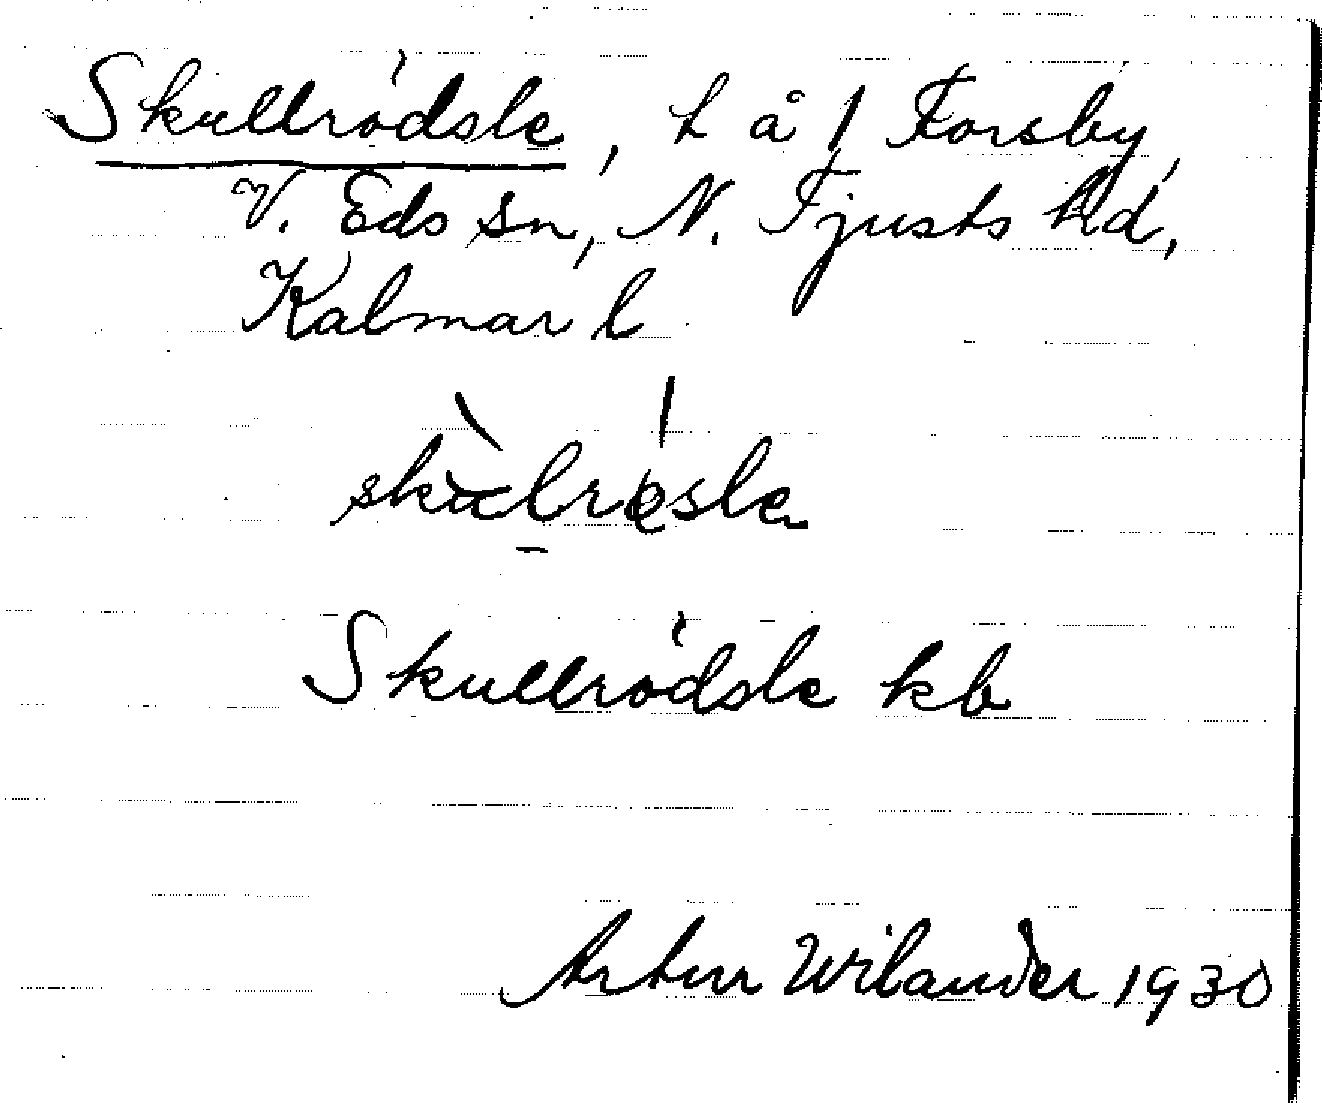 Skullrödsle, t å f Forsby,
V. Eds sn, N. Tjusts hd,
Kalmar l
skùlrǿsle
Skullrödsle kb
Artur Wilander 1930